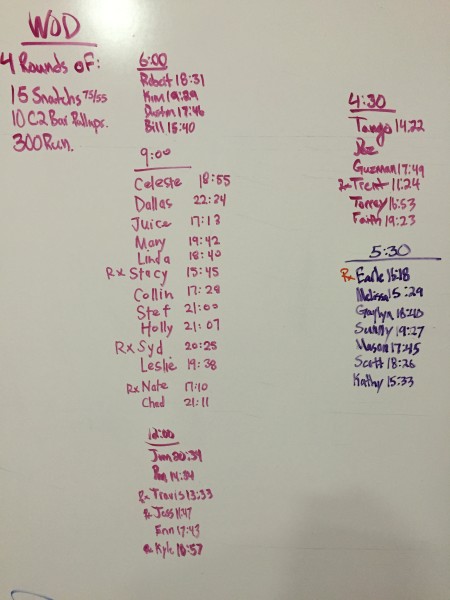 WOD
4 Rounds of:
15 Snatchs 75/55
10 C2 Bar Pullups.
300 Run.
6:00
Robert 18:31
Kim 19:29
Dustin 17:46
Bill 15:40
9:00
Celeste 18:55
Dallas 22:24
Juice 17:13
Mary 19:42
Linda 18:40
Rx Stacy 15:45
Collin 17:28
Stef 21:00
Holly 21:07
Rx Syd 20:25
Leslie 19:38
Rx Nate 17:10
Chad 21:11
12:00
20:39
14:34
Rx Travis 13:33
Rx Jess 11:47
Erin 17:43
Rx Kyle 10:57
4:30
Tango 14:22
Guzman 17:49
Rx Trent 11:24
Torrey 16:53
Faith 19:23
5:30
Rx Earle
Melissa 15:29
18:40
Sunny 19:27
Mason 17:45
Scott 18:26
Kathy 15:33